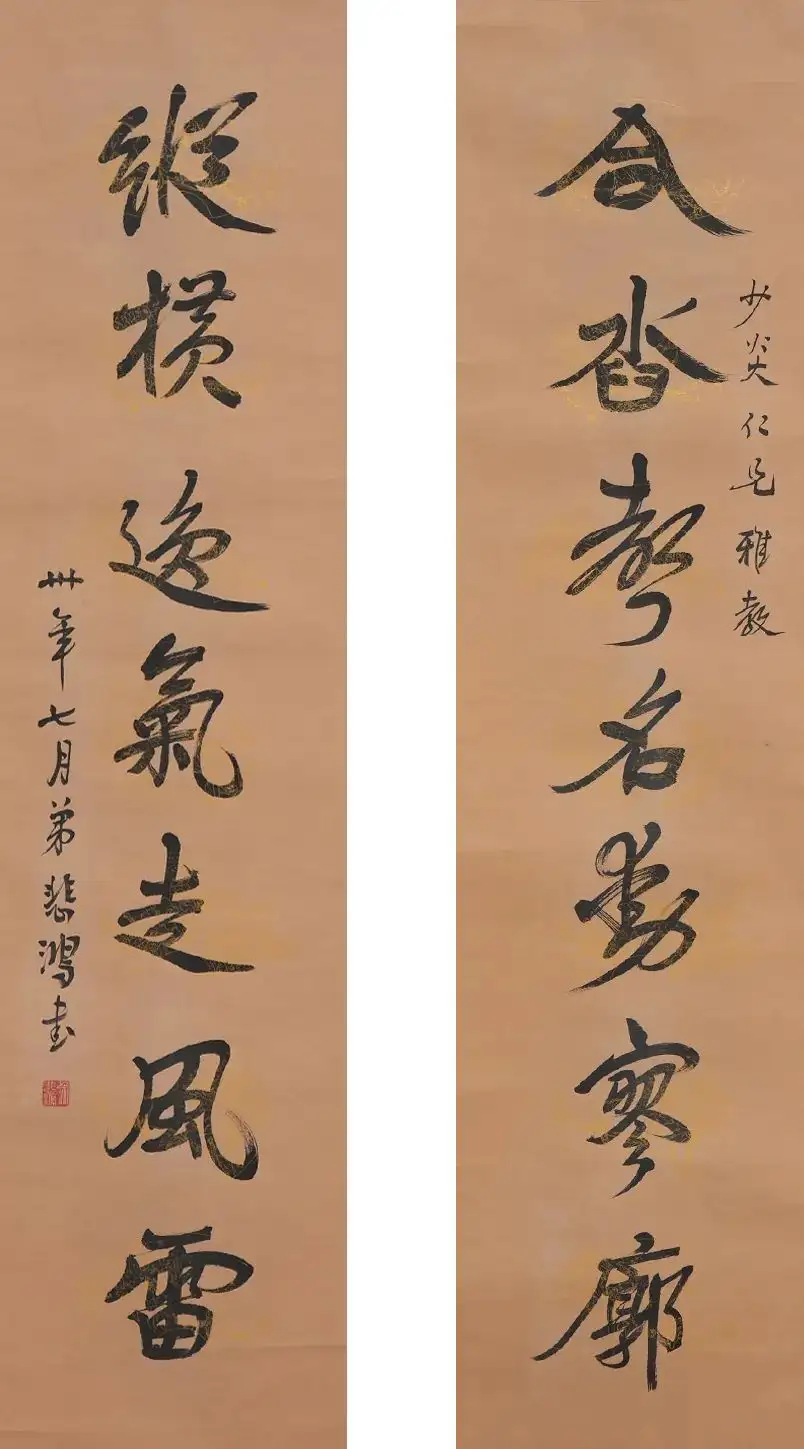 合沓声名动寥廓
少炎仁兄雅教
縱横逸氣走風雷
卅年七月弟悲鴻书